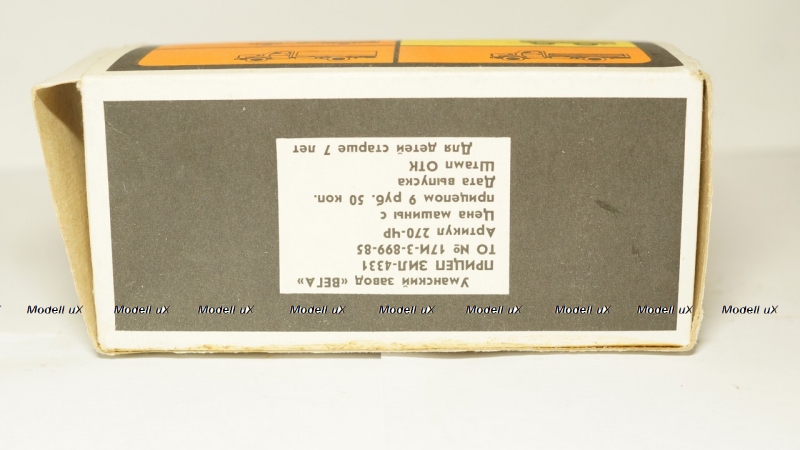 Уманский завод «ВЕГА»
ПРИЦЕП ЗИЛ-4331
ТО № 17И-3-899-85
Артикул 270-ЧР
Цена машины с
прицепом 9 руб. 50 коп.
Дата выпуска
Штамп ОТК
Для детей старше 7 лет
Modell uX Modell uX Modell uX Modell uX Modell uX Modell uX Modell uX Modell uX Modell uX